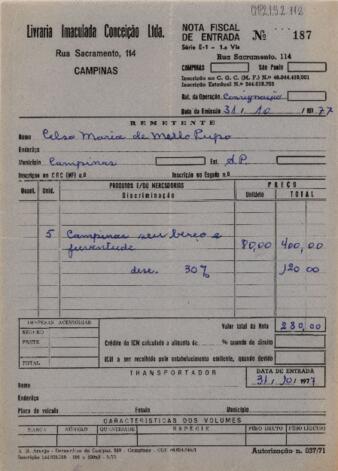 012.192.112
Livraria Imaculada Conceição Ltda.
Rua Sacramento, 114
CAMPINAS
NOTA FISCAL
DE ENTRADA Nº 187
Série E-1 - 1.a Via
Rua Sacramento, 114
CAMPINAS São Paulo
Inscrição no C. G. C. (M. F.) N.º
Inscrição Estadual N.º
Nat. da Operação Consignação
Data da Emissão 31/10/1977
REMETENTE
Nome Celso Maria de Mello Pupo
Endereço
Município Campinas Est. S.P.
Inscrição no C G C (MF) n.o Inscrição no Estado n.o
Quant. Unid. PRODUTOS E/OU MERCADORIAS
Discriminação PREÇO
Unitário TOTAL
5 Campinas seu berço e
juventude 80,00 400,00
desc. 30% 120,00
DESPESAS ACESSORIAS
SEGURO
FRETE
TOTAL
Valor total da Nota 280,00
Crédito do ICM calculado a alíquota de % quando de direito
ICM a ser recolhido pelo estabelecimento emitente, quando devido
TRANSPORTADOR
DATA DE ENTRADA
31/10/1977
Nome
Endereço
Placa do veículo Estado Município
CARACTERÍSTICAS DOS VOLUMES
MARCA NÚMERO QUANTIDADE ESPÉCIE PÊSO BRUTO PÊSO LÍQUIDO
Autorização n. 037/71